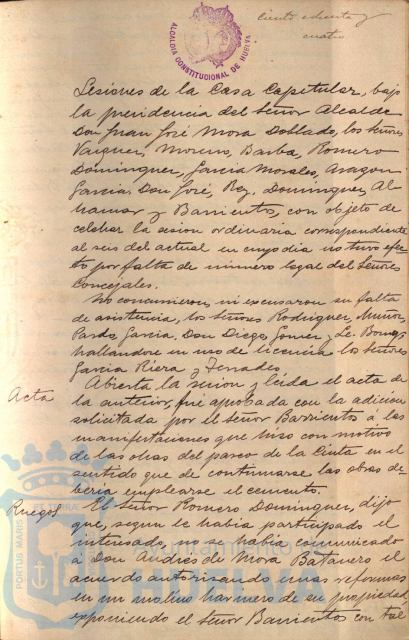 ciento ochenta y
cuatro
ALCALDIA CONSTITUCIONAL DE HUELVA
Sesiones de la Casa Capitular, bajo
la presidencia del Señor Alcalde
Don Juan José Mora Doblado, los Señores
Vazquez, Moreno, Barba, Romero
Dominguez, Garcia Morales, Aragon
Garcia Don José, Rey, Dominguez, Al-
hamar y Barrientos, con objeto de
celebrar la sesion ordinaria correspondiente
al seis del actual en cuyo dia no tuvo efec-
to por falta de número legal del Señores
Concejales.
No concurrieron, ni excusaron su falta
de asistencia, los Señores Rodriguez, Muñoz,
Pardo, Garcia, Don Diego, Gomez y Le Bourg
hallandose en uso de licencia los Señores
Garcia Riera y Tenades
Acta
Abierta la sesion y leida el acta de
la anterior, fué aprobada con la adicion
solicitada por el Señor Barrientos a las
manifestaciones que hizo con motivo
de las obras del paseo de la Cinta en el
sentido que de continuarse las obras de-
beria emplearse el cemento.
Ruegos
El Señor Romero Dominguez, dijo
que, segun le habia participado el
interesado, no se habia comunicado
a Don Andrés de Mora Batanero el
acuerdo autorizando unas reformas
en un molino harinero de su propiedad
exponiendo el Señor Barrientos con tal
PORTUS MARIS
Ayuntamiento de
HUELVA